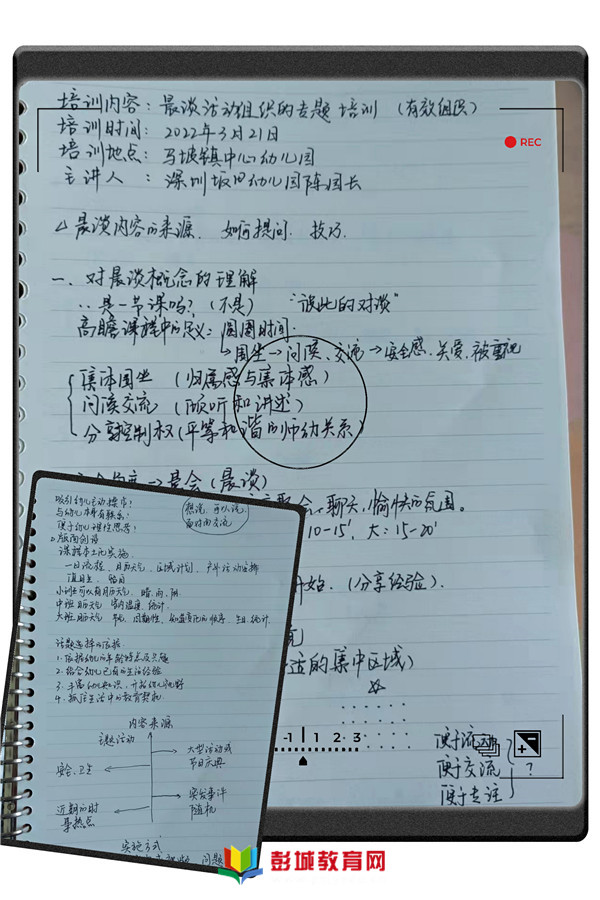 培训内容：晨谈活动组织的专题培训（有效组织）
培训时间：2022年3月21日
培训地点：马坡镇中心幼儿园
主讲人：深圳坂田幼儿园陈园长
REC
△晨谈内容的来源、如何提问、技巧.
一、对晨谈概念的理解
是一节课吗？（不是） “彼此的对谈”
高瞻课程中的定义：圆圈时间.
↳围坐→问候、交流→安全感、关爱、被重视
集体围坐（归属感与集体感）
问候交流（倾听和讲述）
分享控制权（平等和谐的师幼关系）
→晨会（晨谈）
聊天，愉快的氛围。
10-15' 大：15-20'
开始.（分享经验）.
适的集中区域）
-1 1 2 3
便于流动
便于交流 ？
便于专注
吸引幼儿主动操作？
与幼儿有联系？
便于幼儿理性思考？
想说，可以说，
面对面交流
版面创设
课程本土化实施.
一日流程、月历天气、区域计划、户外活动安排
值日生
小班 可以有月历天气、晴、雨、阴.
中班 月历天气 室内温度、统计.
大班 月历天气 统计.
话题选择的依据
1.依据幼儿的年龄特点及兴趣
2.结合幼儿已有的生活经验
3.丰富幼儿知识，开拓幼儿视野
4.抓住生活中的教育契机
内容来源
课题活动
大型活动或
节日庆典
安全、卫生
突发事件
随机
近期的时
事热点
实施方式
问题
彭城教育网